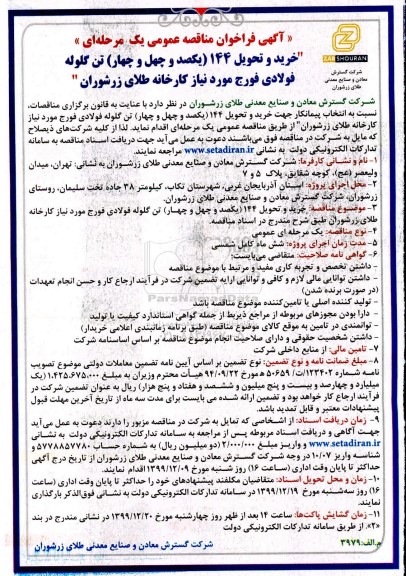 « آگهی فراخوان مناقصه عمومی یک مرحله‌ای »
"خرید و تحویل ۱۴۴ (یکصد و چهل و چهار) تن گلوله
فولادی فورج مورد نیاز کارخانه طلای زرشوران"
ZARSHOURAN
شرکت گسترش
معادن و صنایع معدنی
طلای زرشوران
شرکت گسترش معادن و صنایع معدنی طلای زرشوران در نظر دارد با عنایت به قانون برگزاری مناقصات،
نسبت به انتخاب پیمانکار جهت خرید و تحویل ۱۴۴ (یکصد و چهل و چهار) تن گلوله فولادی فورج مورد نیاز
کارخانه طلای زرشوران" از طریق مناقصه عمومی یک مرحله‌ای اقدام نماید. لذا از کلیه شرکت‌های ذیصلاح
که مایل به شرکت در مناقصه فوق می‌باشند دعوت به عمل می‌آید جهت دریافت اسناد مناقصه به سامانه
تدارکات الکترونیکی دولت به نشانی www.setadiran.ir مراجعه نمایند.
۱- نام و نشانی کارفرما: شرکت گسترش معادن و صنایع معدنی طلای زرشوران به نشانی: تهران، میدان
ولیعصر (عج)، کوچه شقایق، پلاک ۵ و ۷
۲- محل اجرای پروژه: استان آذربایجان غربی، شهرستان تکاب، کیلومتر ۳۸ جاده تخت سلیمان، روستای
زرشوران، شرکت گسترش معادن و صنایع معدنی طلای زرشوران.
۳- موضوع مناقصه: خرید و تحویل ۱۴۴ (یکصد و چهل و چهار) تن گلوله فولادی فورج مورد نیاز کارخانه
طلای زرشوران طبق شرح مندرج در اسناد مناقصه.
۴- نوع مناقصه: یک مرحله ای عمومی
۵- مدت زمان اجرای پروژه: شش ماه کامل شمسی
۶- گواهی نامه صلاحیت: متقاضی می‌بایست:
- داشتن تخصص و تجربه کاری مفید و مرتبط با موضوع مناقصه
- داشتن توانایی مالی لازم و کافی و توانایی ارایه تضمین شرکت در فرآیند ارجاع کار و حسن انجام تعهدات
(در صورت برنده شدن)
- تولید کننده اصلی یا تامین‌کننده موضوع مناقصه باشد
- دارا بودن مجوزهای مربوطه از مراجع ذیربط از جمله گواهی استاندارد کیفیت یا تولید
- توانمندی در تامین به موقع کالای موضوع مناقصه (طبق برنامه زمانبندی اعلامی خریدار)
- داشتن شخصیت حقوقی و دارای صلاحیت انجام موضوع مناقصه بر اساس اساسنامه شرکت
۷- تامین مالی: از منابع داخلی شرکت
۸- مبلغ ضمانت نامه و نوع تضمین: نوع تضمین بر اساس آیین نامه تضمین معاملات دولتی موضوع تصویب
نامه شماره ۱۲۳۴۰۲/ت۵۰۶۵۹ ه مورخ ۹۴/۰۹/۲۲ هیأت محترم وزیران به مبلغ ۱،۴۲۵،۶۷۵،۰۰۰ (یک
میلیارد و چهارصد و بیست و پنج میلیون و ششصد و هفتاد و پنج هزار) ریال به عنوان تضمین شرکت در
فرآیند ارجاع کار خواهد بود و تضمین ارائه شده می بایست برای مدت سه ماه از تاریخ آخرین مهلت قبول
پیشنهادات معتبر و قابل تمدید باشد.
۹- زمان دریافت اسناد: از اشخاصی که تمایل به شرکت در مناقصه مزبور را دارند دعوت به عمل می‌آید
جهت آگاهی و دریافت اسناد مربوطه پس از مراجعه به سامانه تدارکات الکترونیکی دولت به نشانی
www.setadiran.ir و واریز مبلغ ۲/۰۰۰/۰۰۰ (دو میلیون ریال) به شماره حساب ۵۷۷۸۸۵۷۷۸۰ و
شناسه واریز ۱۰/۰۷ در وجه شرکت گسترش معادن و صنایع معدنی طلای زرشوران از تاریخ درج آگهی
حداکثر تا پایان وقت اداری (ساعت ۱۶) روز شنبه مورخ ۱۳۹۹/۱۲/۰۹ اقدام نمایند.
۱۰- زمان و محل تحویل اسناد: متقاضیان مکلفند پیشنهادهای خود را حداکثر تا پایان وقت اداری (ساعت
۱۶) روز سه‌شنبه مورخ ۱۳۹۹/۱۲/۱۹ در سامانه تدارکات الکترونیکی دولت به نشانی فوق‌الذکر بارگذاری
نمایند.
۱۱- زمان گشایش پاکت‌ها: ساعت ۱۴ بعد از ظهر روز چهارشنبه مورخ ۱۳۹۹/۱۲/۲۰ در نشانی مندرج در بند
«۲». از طریق سامانه تدارکات الکترونیکی دولت
م.الف: ۳۹۷۹
شرکت گسترش معادن و صنایع معدنی طلای زرشوران